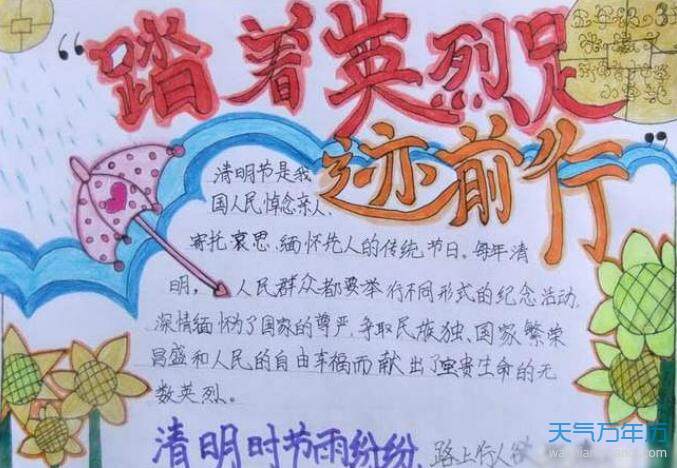 “踏着英烈足
迹前行”
清明节是我
国人民悼念亲人、
寄托哀思、缅怀先人的传统节日。每年清
明，人民群众都要举行不同形式的纪念活动，
深情缅怀为了国家的尊严、争取民族独、国家繁荣
昌盛和人民的自由幸福而献出了宝贵生命的无
数英烈。
清明时节雨纷纷，路上行人欲
天气万年历